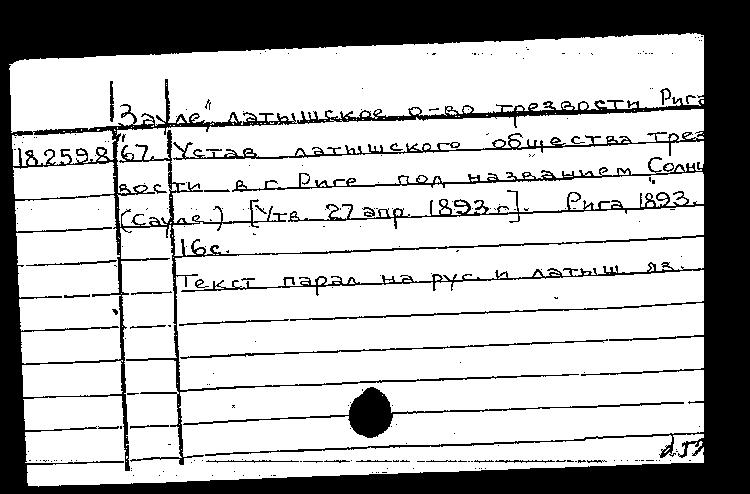 Зауле," латышское о-во трезвости Рига
18.259.8.67. Устав латышского общества трез
вости в г. Риге под названием Солнц
(Сауле.) [Утв. 27 апр. 1893 г]. Рига, 1893.
16 с.
Текст парал на рус. и латыш яз.